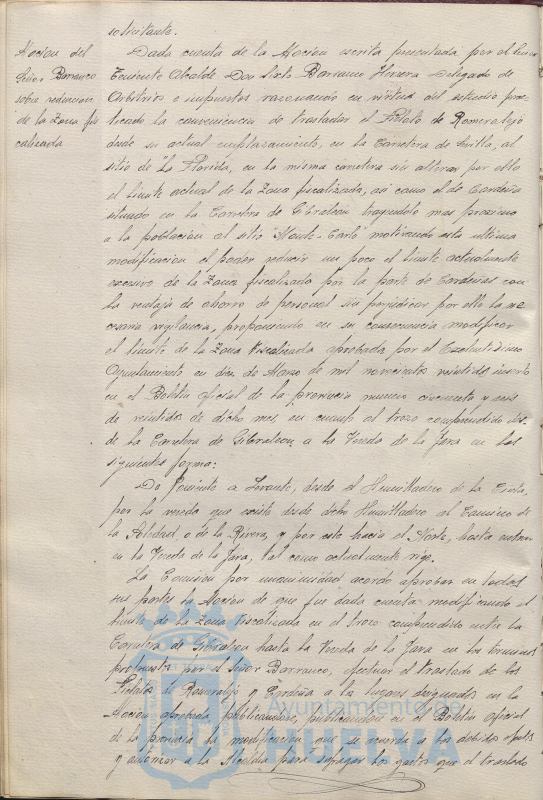 solicitante.
Mocion del
Señor Barranco
sobre reduccion
de la Zona fis
calizada
Dada cuenta de la Mocion escrita presentada por el Señor
Teniente Alcalde Don Sixto Barranco Herrera Delegado de
Arbitrios e impuestos razonando en virtud del estudio prac
ticado la conveniencia de trasladar el Fielato de Romeralejo
desde su actual emplazamiento, en la Carretera de Sevilla, al
sitio de "La Florida, en la misma carretera sin alterar por ello
el limite actual de la Zona fiscalizada, así como el de Cardeña
situado en la Carretera de Gibraleon trayendolo mas proximo
a la poblacion al sitio "Monte-Carlo" motivando esta ultima
modificacion el poder reducir un poco el limite actualmente
excesivo de la Zona fiscalizada por la parte de Cardeñas con
la ventaja de ahorro de personal sin perjudicar por ello la ne
cesaria vigilancia, proponiendo en su consecuencia modificar
el limite de la Zona Fiscalizada aprobada por el Excelentisimo
Ayuntamiento en diez de Marzo de mil novecientos veintidos inserto
en el Boletin oficial de la provincia numero cincuenta y seis
de veintidos de dicho mes, en cuanto al trozo comprendido des-
de la Carretera de Gibraleon a la Vereda de la Jara en las
siguientes forma:
De Poniente a Levante, desde el Humilladero de la Cinta,
por la vereda que existe desde dicho Humilladero al Camino de
la Soledad o de la Rivera, y por este hacia el Norte, hasta entrar
en la Vereda de la Jara, tal como actualmente rige.
La Comision por unanimidad acordo aprobar en todas
sus partes la Mocion de que fue dada cuenta modificando el
limite de la zona fiscalizada en el trozo comprendido entre la
Carretera de Gibraleon hasta la Vereda de la Jara en los terminos
propuestos por el Señor Barranco, efectuar el traslado de los
Fielatos de Romeralejo y Cardeña a los lugares designados en la
Mocion aprobada, publicandose en el Boletin Oficial
de la provincia la modificacion que se acuerda a los debidos efectos
y autorizar a la Alcaldia para sufragar los gastos que el traslado
Ayuntamiento de
HUELVA